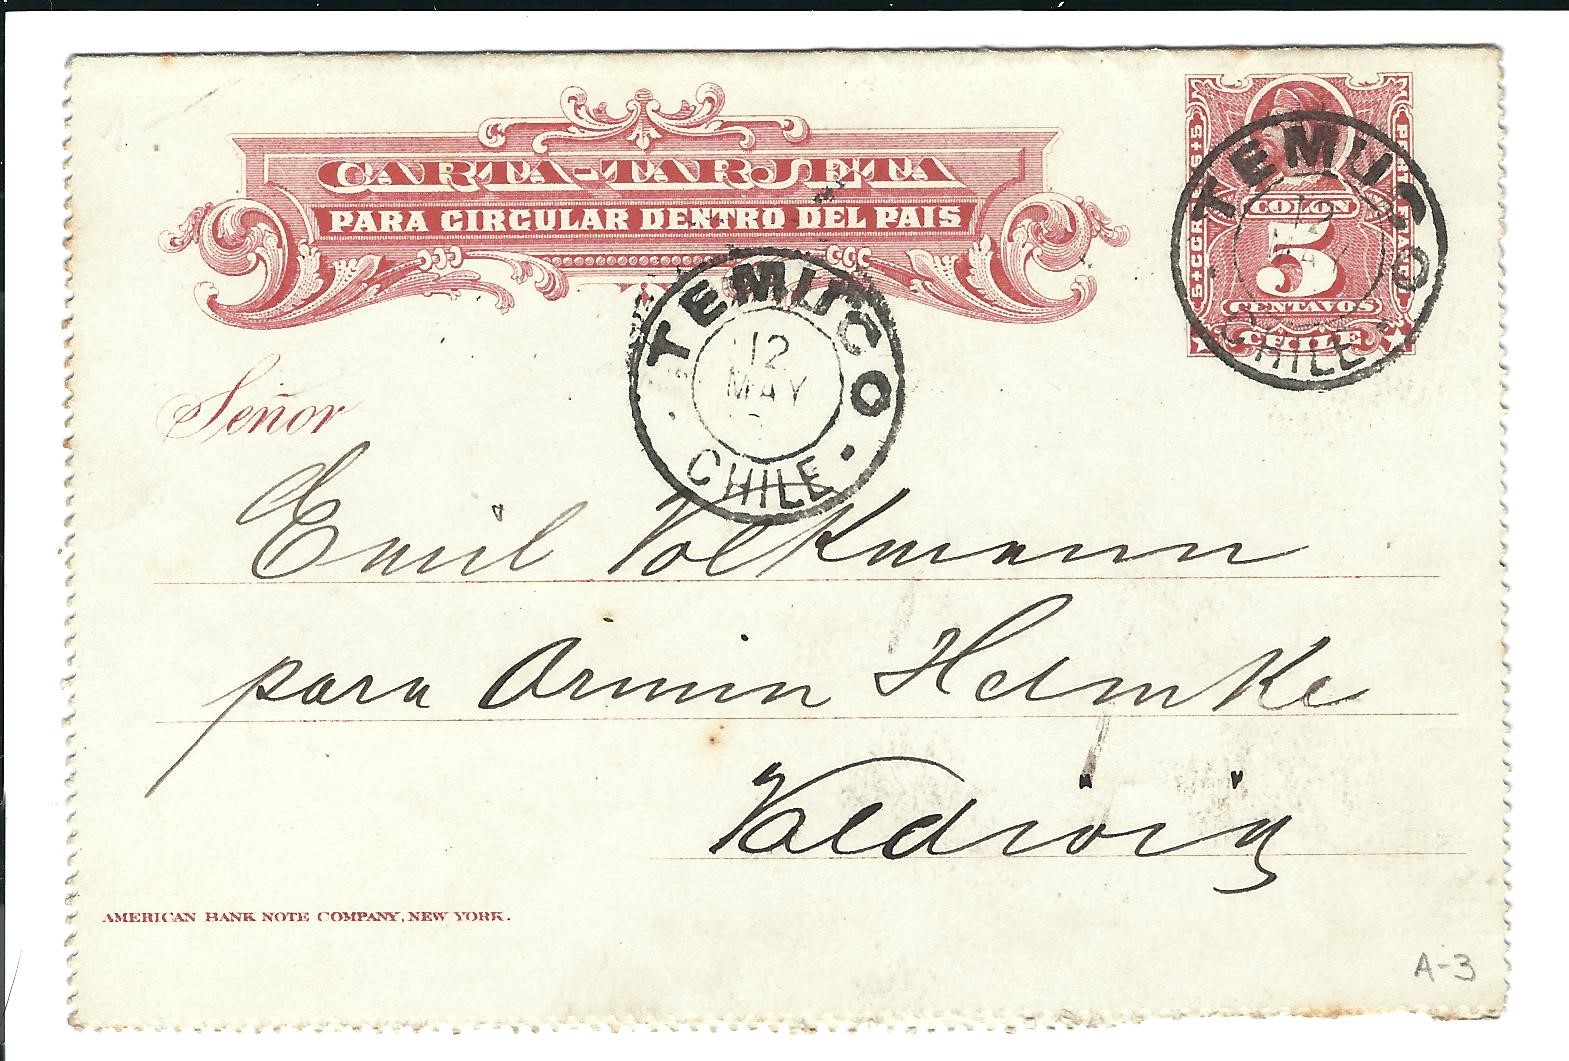 CARTA-TARJETA
PARA CIRCULAR DENTRO DEL PAIS
COLON
5
CENTAVOS
CHILE
TEMUCO
12
MAY
CHILE
TEMUCO
12
MAY
CHILE
Señor
Emil Volkmann
para Armin Helmke
Valdivia
AMERICAN BANK NOTE COMPANY, NEW YORK.
A-3